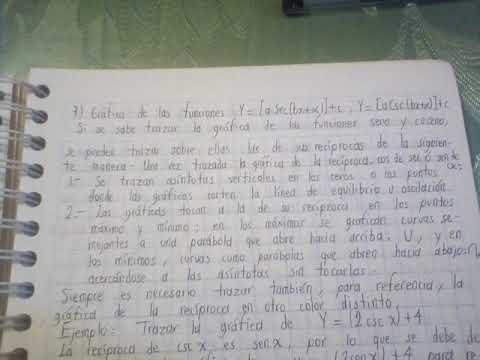 3) Gráfica de las funciones Y=[a Sec(bx+α)]+c, Y=[a Csc(bx+α)]+c
Si se sabe trazar la gráfica de las funciones seno y coseno,
se puede trazar sobre ellas las de sus recíprocas de la siguien-
te manera: Una vez trazada la gráfica de la recíproca, cos de sec ó sen de
csc:
1.- Se trazan asíntotas verticales en los ceros o los puntos
donde las gráficas corten la línea de equilibrio u oscilación.
2.- Las gráficas tocan a la de su recíproca en los puntos
máximo y mínimo: en los máximos se grafican curvas se-
mejantes a una parábola que abre hacia arriba: U, y en
los mínimos, curvas como parábolas que abren hacia abajo: ∩
acercándose a las asíntotas sin tocarlas.
Siempre es necesario trazar también, para referencia, la
gráfica de la recíproca en otro color distinto.
Ejemplo: Trazar la gráfica de Y=(2 csc x)+4
La recíproca de csc x es sen x, por lo que se debe de